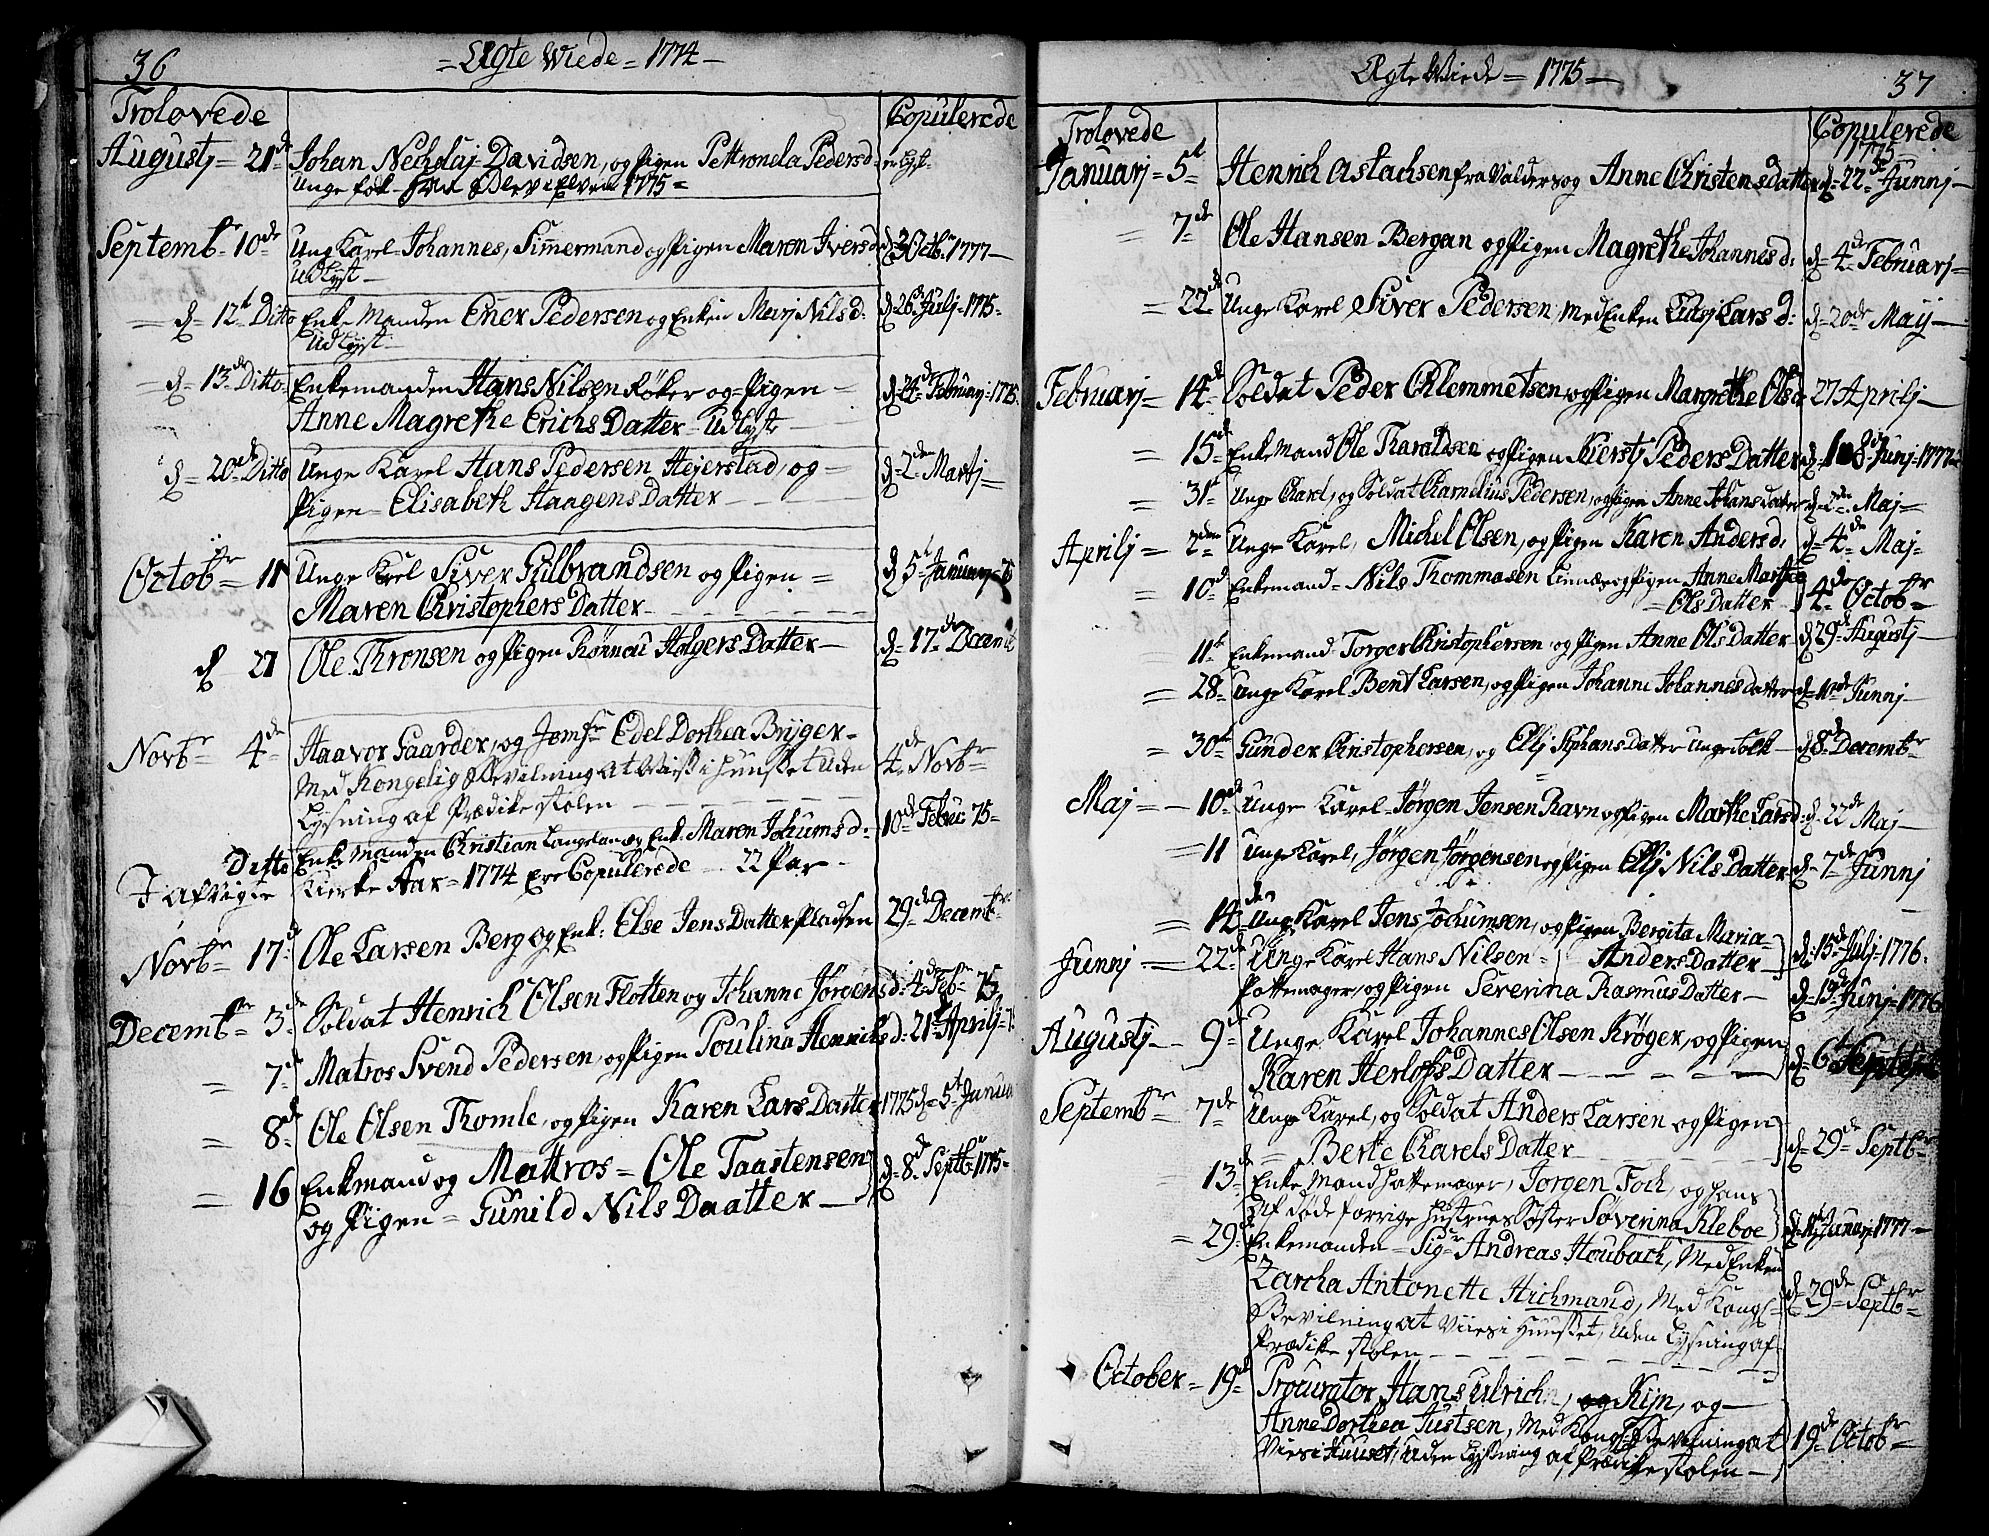 36 = Ægte Wiede = 1774 =
Trolovede Copulerede
Augustj = 21de Johan Davidsen, og Pigen Pettronela Pedersd:
Unge folk 1775 =
Septembr 10de Ung Karl Johannes, Simmermand og Pigen Maren Iversd d 3 Octbr 1777 —
Udlyst —
= d = 12t Ditto Enke Manden Ener Pedersen og Enken Marj Nilsd: d 26 Julj = 1775 =
Udlyst
= d = 13de Ditto Enkemanden Hans Nilsen Röker og = Pigen = d 24de Februarj = 1775
Anne Magrethe Erichs Datter = Udlyst
d = 20de Ditto Unge Karel Hans Pedersen Hejerstad, og = d = 2den Martj =
Pigen = Elisabeth Haagens Datter
Octobr = 11 Unge Karel Siver Gulbrandsen og Pigen = d 5t Januarj =
Maren Christophers Datter
d 27 Ole Thronsen og Pigen Rönnau Holgers Datter — d = 17de Decemb
Novbr 4de Haavor Gaarder, og Jomfr Edel Dorthea Bryger = 4de Novbr =
Med Kongelig Bevilning at Vies i Huusset uden
Lysning af Prædike stolen
Ditto Enke Manden Christian Langeland og Enk: Maren Jochumsd: 10de Febru 75 =
I afvigte Kierke Aar = 1774 ere Copulerede = 22 Par
Novbr = 17d Ole Larsen Berg og Enk: Else Jens Datter Pladsen 29de Decembr
Decembr = 3de Soldat Henrich Olsen Flotten og Johanne Jörgensd: 4de Febr 75
= 7d Matros Svend Pedersen, og Pigen Poulina Henrichsd: 21t Aprilj =
= 8d Ole Olsen Thomle, og Pigen Karen Lars Datter 1775 d = 5t Januar
= 16 Enkmand og Mattros = Ole Taastensen d = 8d Septbr 1775 =
og Pigen = Gunild Nils Daatter
Ægte Wiede = 1775 — 37
Trolovede Copulerede
1775
Januarj = 5t Henrich Astachsen fra Valders og Anne Christensdatter d = 22de Junnj —
= 7de Ole Hansen Bergan og Pigen Magrethe Johannesd: d = 4de Februarj =
= 22de Unge Karel, Siver Pedersen, med Enken Larsd: d = 20de Maij
Februarj = 14d Soldat Peder Clemmetsen, og Pigen Margrethe Olsd 27 Aprilj —
= 15de Enke Mand Ole Tharaldsen og Pigen Kierstj Peders Datter d 8de Junj = 1777
= 31t Unge Karel, og Soldat Carnelius Pedersen, og Pigen Anne Johansdatter d = 2den Maj =
Aprilj = 2den Unge Karel, Michel Olsen, og Pigen Karen Andersd: d = 4de Maj =
= 10d Enkemand = Nils Thommasen og Pigen Anne Marthe
Ols Datter 4de Octobr =
11t Enkemand Torger Christophersen og Pigen Anne Ols Datter d 29d Augustj —
= 28 = Unge Karel Bent Larsen, og Pigen Johanne Johannes datter d = 10de Junnj —
= 30t Gunder Christophersen, og Ellj Stephans Datter Unge folk — d 8d Decembr
Maj = — 10de Unge Karel = Jörgen Jensen Ravn og Pigen Marthe Larsd: d = 22de Maj —
= 11 Unge Karel, Jörgen Jörgensen og Pigen Ellj Nils Datter d = 7de Junnj
= 14de Unge Karel Jens Jochumsen, og Pigen Bergita Maria =
Anders Datter d: 15de Julj = 1776
Junnj = 22de Unge Karel Hans Nilsen
Pottemager, og Pigen Severina Rasmus Datter — d = 13de Junj = 1776
Augustj — 9de Unge Karel Johannes Olsen Kröger, og Pigen
Karen Herloffs Datter — d 6t Septbr
Septembr 7de Unge Karel, og Soldat Anders Larsen og Pigen
= Berte Karels Datter d = 29de Septbr
13de Enke Mand Hattemager, Jörgen Foch, og hans
Af döde forrige Hustrues Söster Söverina Kleboe d 11t Januarj 1777 —
= 29de Enkemanden = Sigr Andreas Houbach, Med Enken
Zarcha Antonette Hichmand, Med Kongl = d 29de Septbr
Bevilning at Vies i Huusset, uden Lysning af
Prædike stolen
October = 19de Procurator Hans Ulrich, og Kijn, og —
Anne Dorthea Justsen, Med Kongl Bevilning at 19de Octobr
Vies i Huuset, uden Lysning af Prædike stolen —